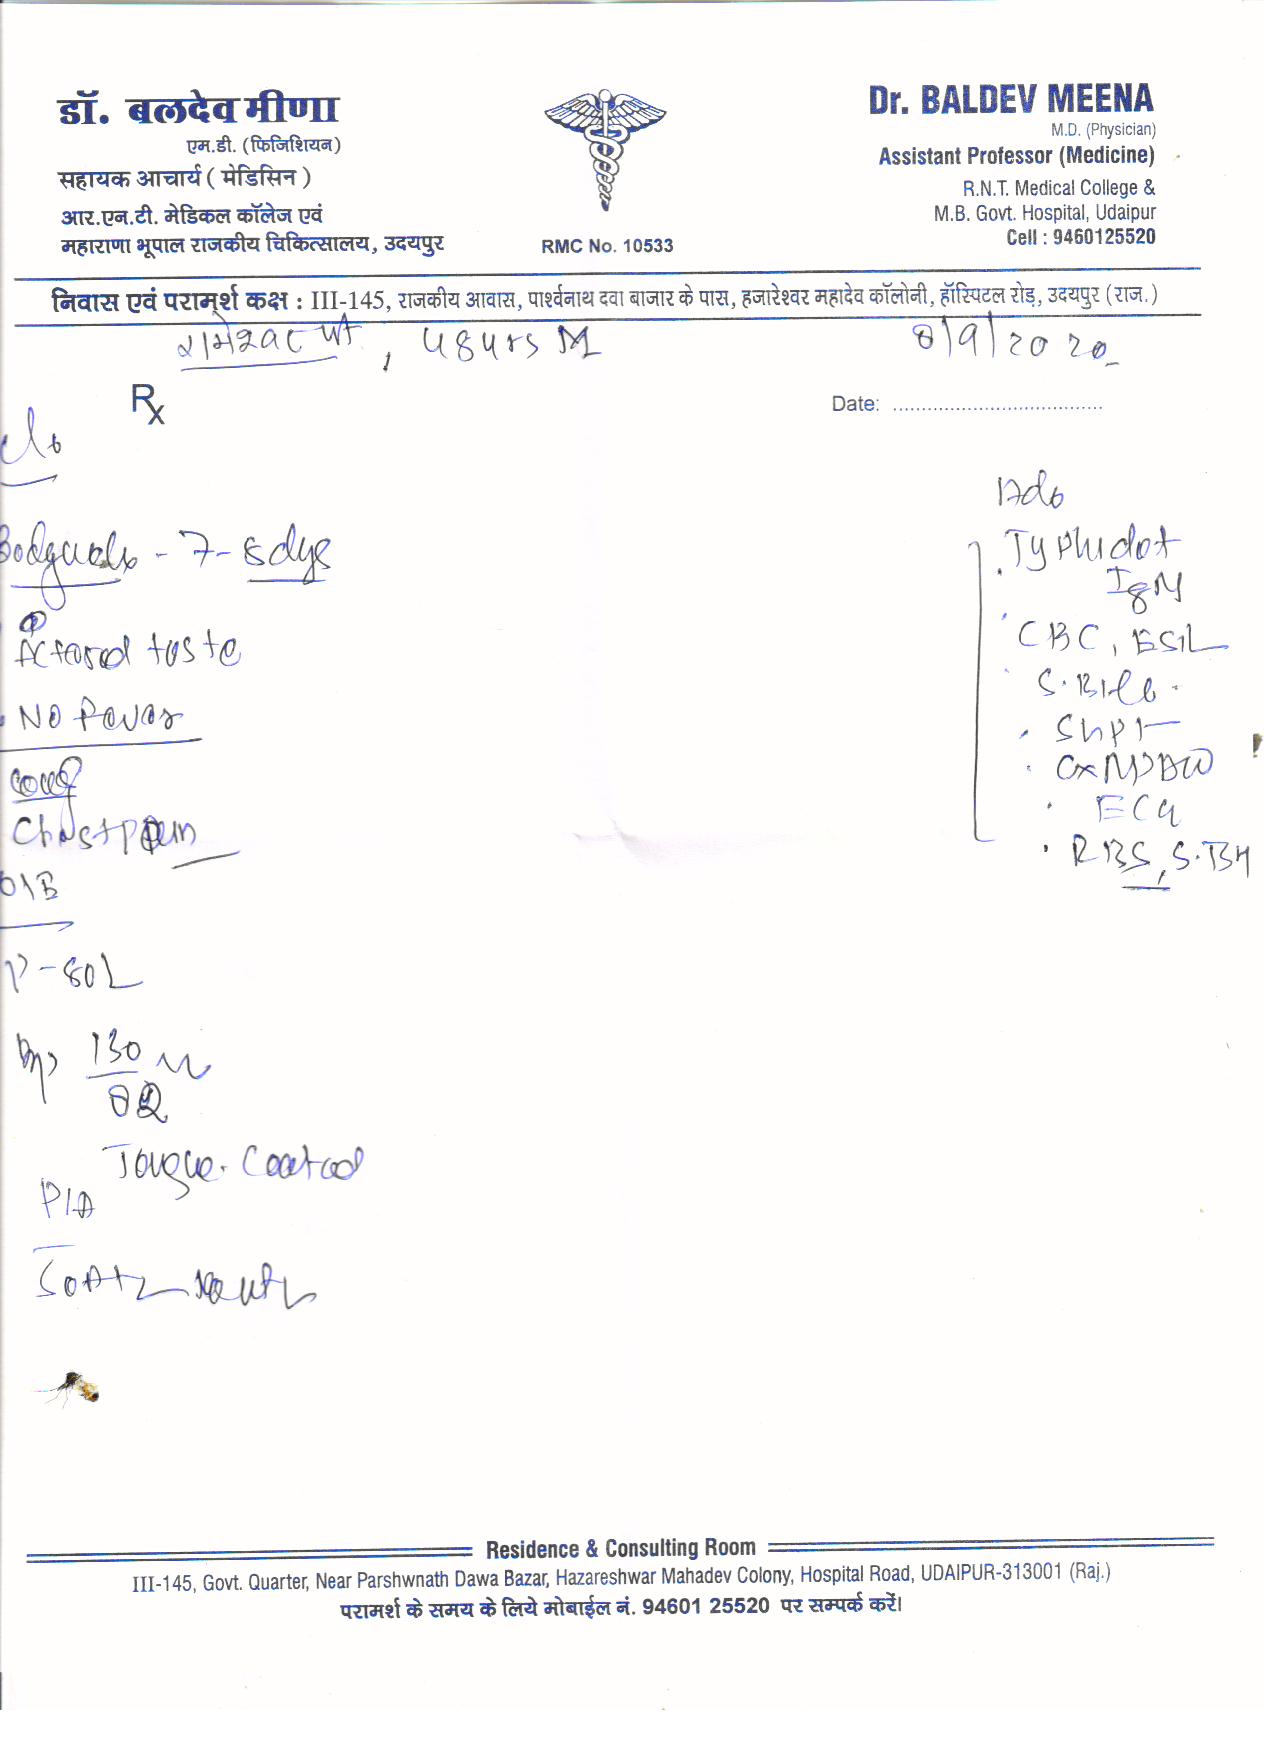 डॉ. बलदेव मीणा
एम.डी. (फिजिशियन)
सहायक आचार्य ( मेडिसिन )
आर.एन.टी. मेडिकल कॉलेज एवं
महाराणा भूपाल राजकीय चिकित्सालय, उदयपुर
RMC No. 10533
Dr. BALDEV MEENA
M.D. (Physician)
Assistant Professor (Medicine)
R.N.T. Medical College &
M.B. Govt. Hospital, Udaipur
Cell : 9460125520
निवास एवं परामर्श कक्ष : III-145, राजकीय आवास, पार्श्वनाथ दवा बाजार के पास, हजारेश्वर महादेव कॉलोनी, हॉस्पिटल रोड़, उदयपुर (राज.)
, 48 yrs M
8/9/2020
Rx
Date: ....................................
C/o
- 7-8 dys
taste
No Fever
Chest pain
O/E
P-80
Bp 130
82
Tongue. Coated
P/A
Ado
Typhidot
IgM
CBC, ESR
S. Bili
SGPT
ECG
RBS, S.
Residence & Consulting Room
III-145, Govt. Quarter, Near Parshwnath Dawa Bazar, Hazareshwar Mahadev Colony, Hospital Road, UDAIPUR-313001 (Raj.)
परामर्श के समय के लिये मोबाईल नं. 94601 25520 पर सम्पर्क करें।